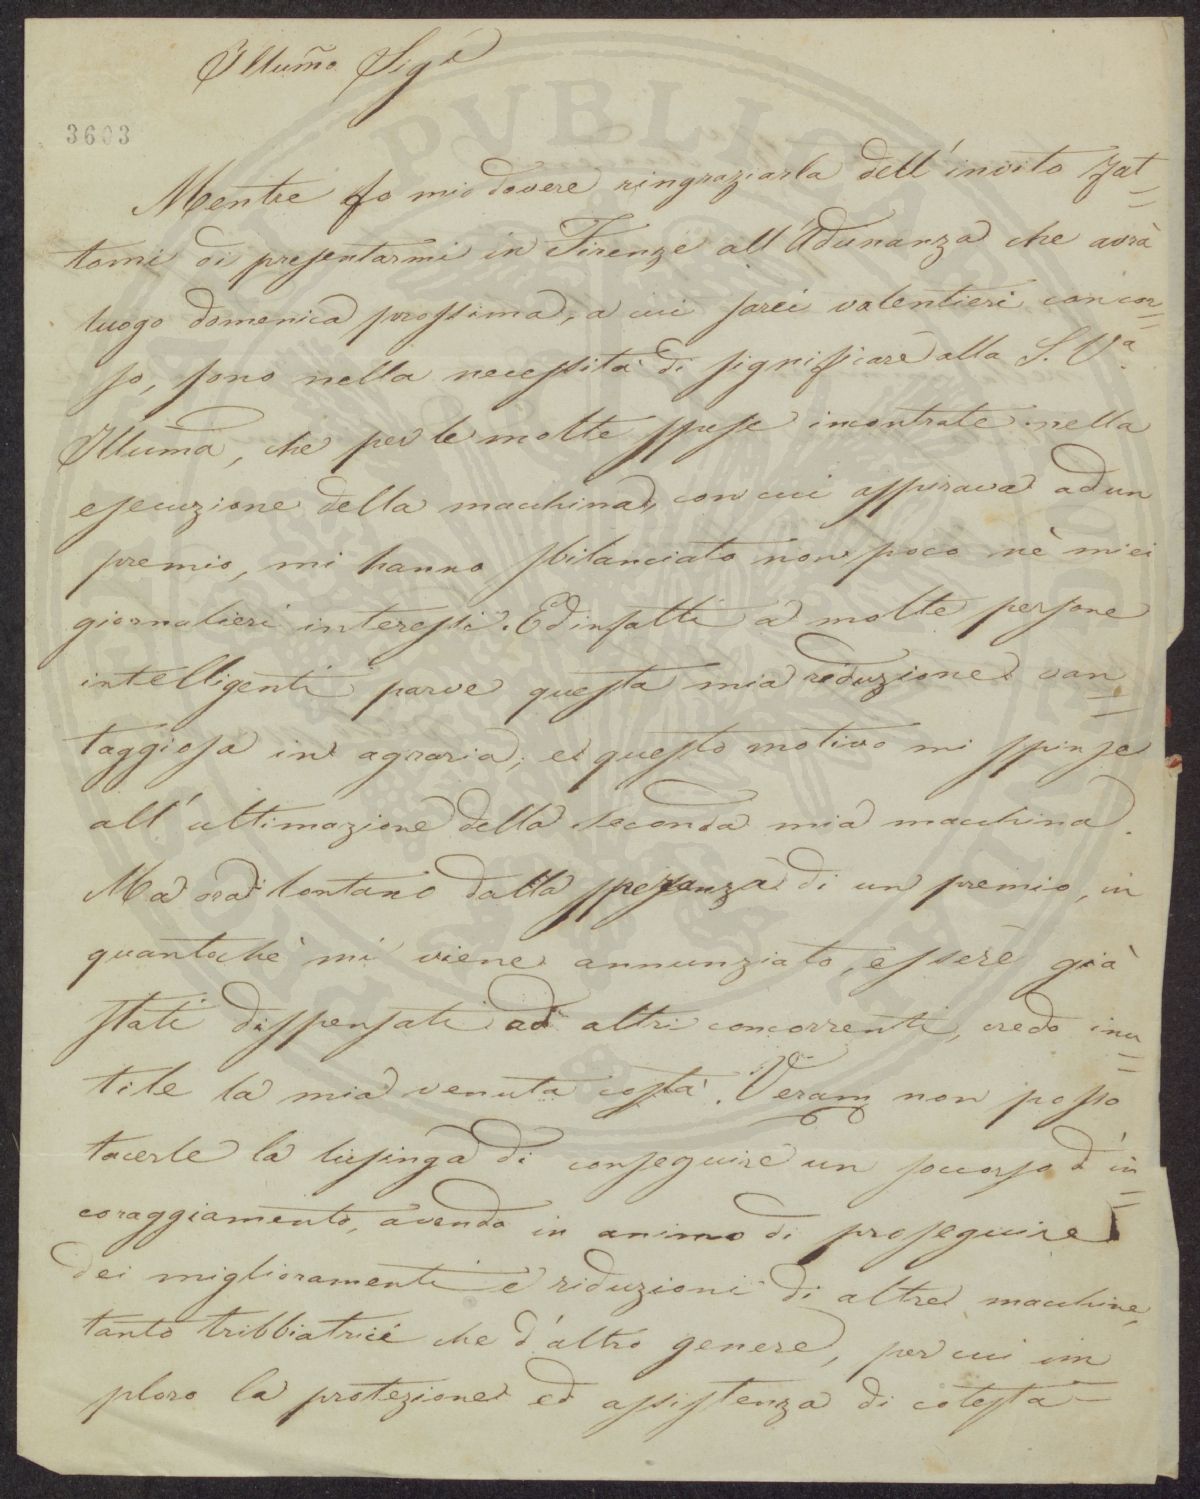 Illumo Sigr
3603
Mentre fo mio dovere ringraziarla dell'invito fat=
tomi di presentarmi in Firenze all'Adunanza che avrà
luogo domenica prossima, a cui sarei volentieri concor=
so, sono nella necessità di significare alla S. Va
Illuma, che per le molte spese incontrate nella
esecuzione della macchina, con cui aspirava ad un
premio, mi hanno sbilanciato non poco nè miei
giornalieri interessi. Ed infatti a molte persone
intelligenti parve questa mia riduzione van=
taggiosa in agraria; e questo motivo mi spinse
all'ultimazione della seconda mia macchina.
Ma ora lontano dalla speranza di un premio, in
quantochè mi viene annunziato, essere già
stati dispensati ad altri concorrenti, credo inu=
tile la mia venuta costà. Veram non posso
tacerle la lusinga di conseguire un soccorso d'in=
coraggiamento, avendo in animo di proseguire
dei miglioramenti e riduzioni di altre macchine,
tanto tribbiatrici che d'altro genere, per cui im=
ploro la protezione ed assistenza di cotesta